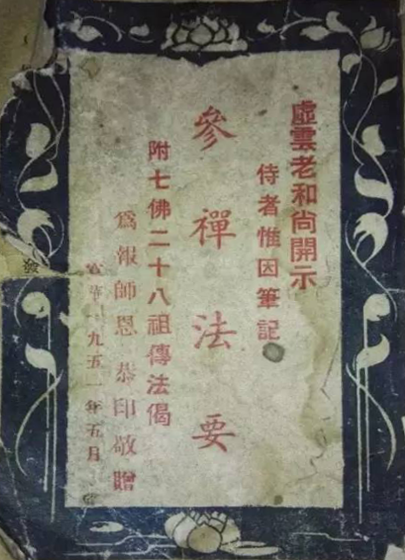 虛雲老和尚開示
侍者惟因筆記
參禪法要
附七佛二十八祖傳法偈
爲報師恩恭印敬贈
一九五一年五月
發